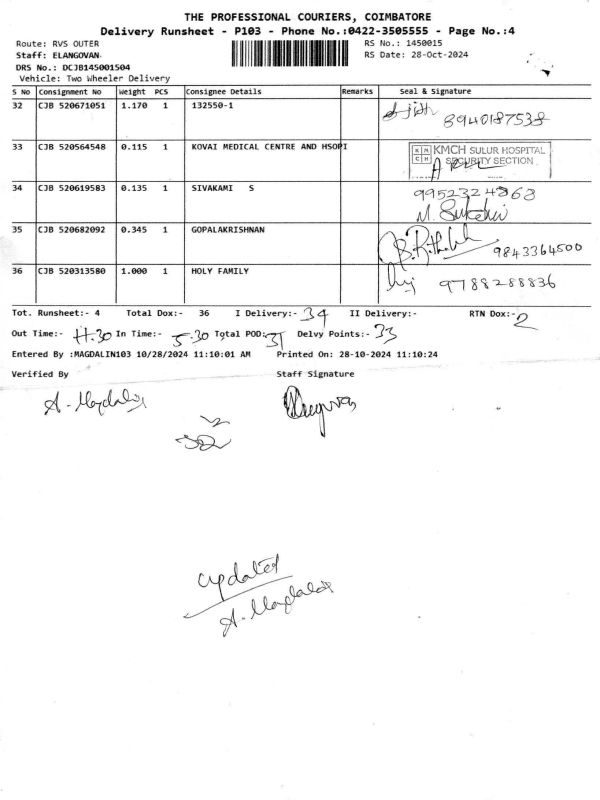 THE PROFESSIONAL COURIERS, COIMBATORE
Delivery Runsheet - P103 - Phone No.:0422-3505555 - Page No.:4
Route: RVS OUTER RS No.: 1450015
Staff: ELANGOVAN RS Date: 28-Oct-2024
DRS No.: DCJB145001504
Vehicle: Two Wheeler Delivery
S No Consignment No Weight PCS Consignee Details Remarks Seal & Signature
32 CJB 520671051 1.170 1 132550-1 8940187538
33 CJB 520564548 0.115 1 KOVAI MEDICAL CENTRE AND HSOPI KMCH KMCH SULUR HOSPITAL
SECURITY SECTION
34 CJB 520619583 0.135 1 SIVAKAMI S 9952324868
35 CJB 520682092 0.345 1 GOPALAKRISHNAN 9843364500
36 CJB 520313580 1.000 1 HOLY FAMILY 9788288836
Tot. Runsheet:- 4 Total Dox:- 36 I Delivery:- 34 II Delivery:- RTN Dox:- 2
Out Time:- 11.30 In Time:- 5.30 Total POD: 31 Delvy Points:- 33
Entered By :MAGDALIN103 10/28/2024 11:10:01 AM Printed On: 28-10-2024 11:10:24
Verified By Staff Signature
A. Magdalin
updated
A. Magdalin